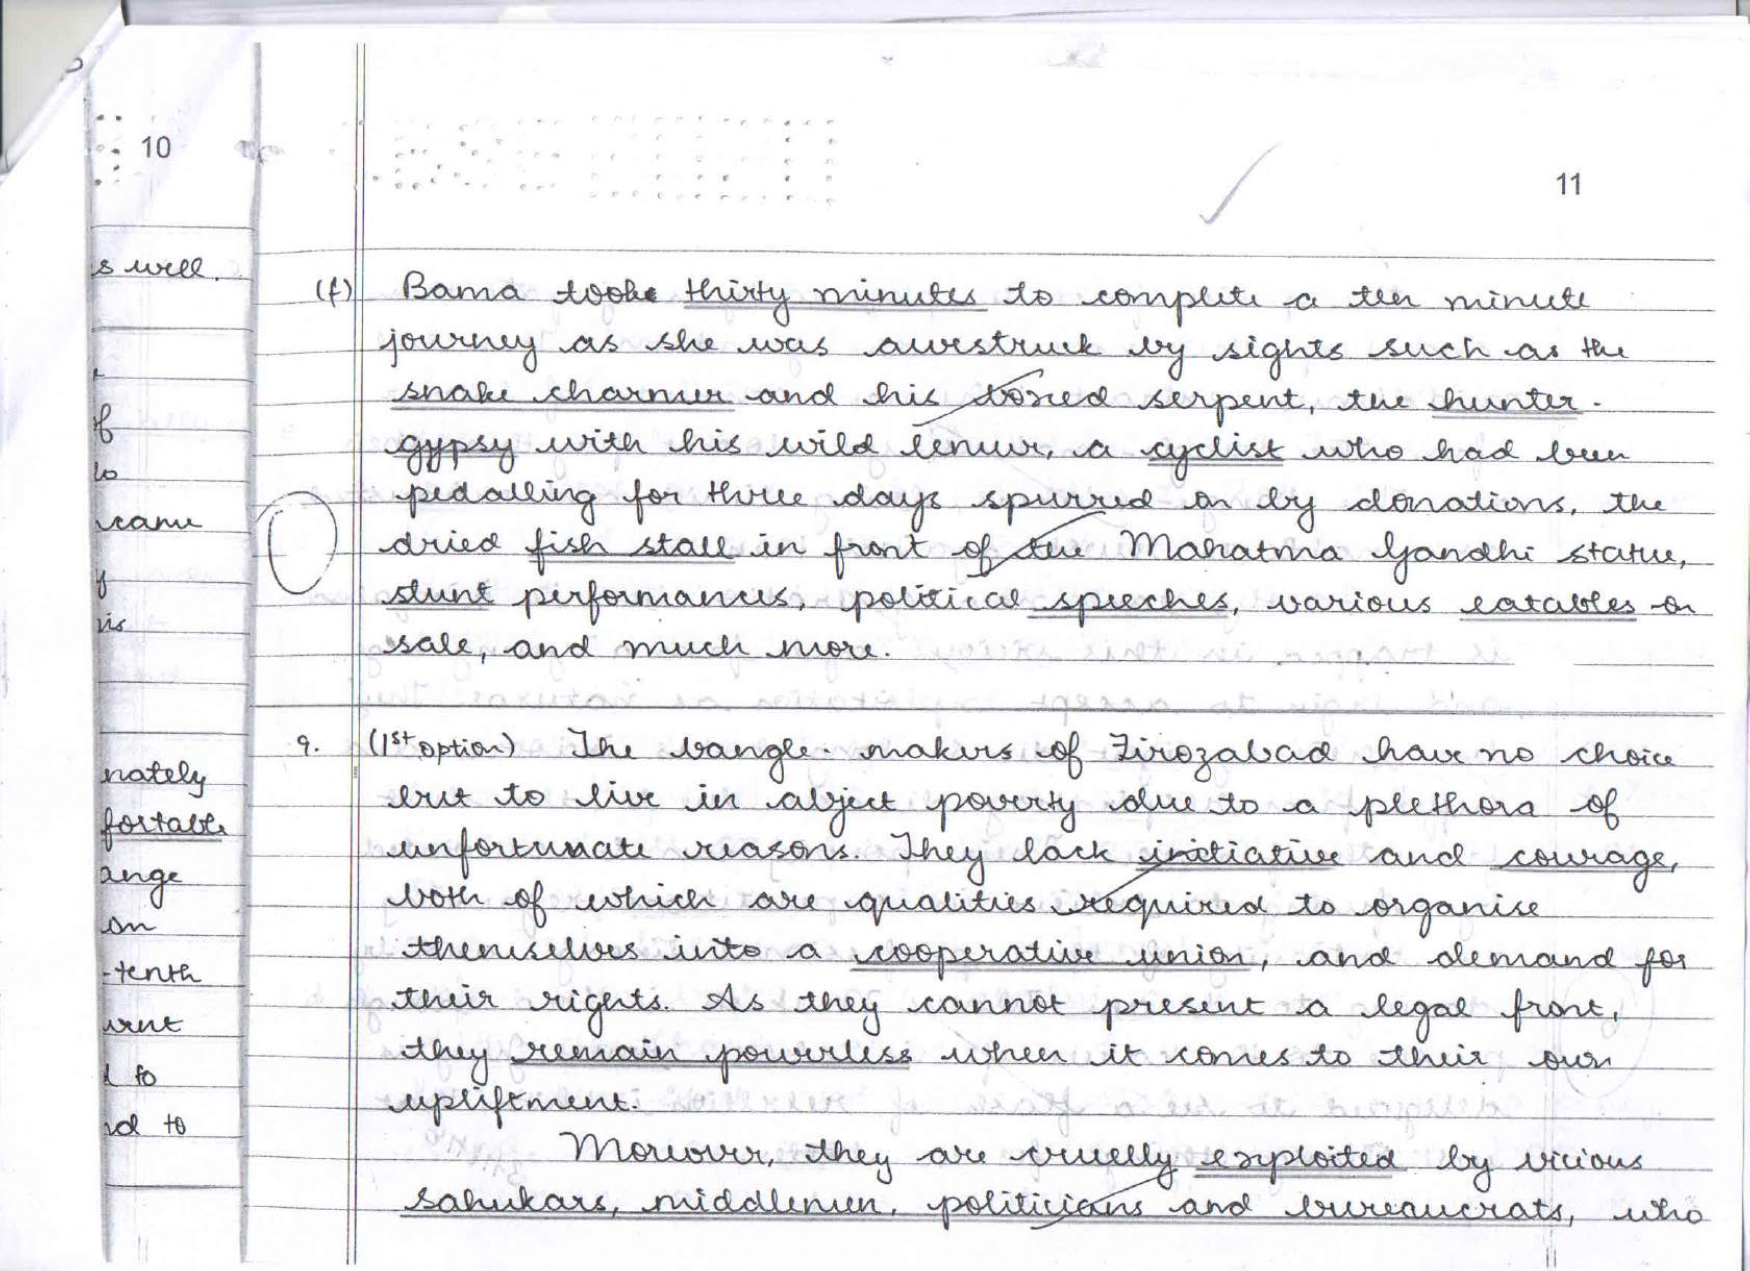 10
11
s well.
f
to
came
f
vis
nately
fortable
ange
on
-tenth
urnt
d to
nd to
(f) Bama took thirty minutes to complete a ten minute
journey as she was awestruck by sights such as the
snake charmer and his boxed serpent, the hunter-
gypsy with his wild lemur, a cyclist who had been
pedalling for three days spurred on by donations, the
dried fish stall in front of the Mahatma Gandhi statue,
stunt performances, political speeches, various eatables on
sale, and much more.
9. (1st option) The bangle-makers of Firozabad have no choice
but to live in abject poverty due to a plethora of
unfortunate reasons. They lack initiative and courage,
both of which are qualities required to organise
themselves into a cooperative union, and demand for
their rights. As they cannot present a legal front,
they remain powerless when it comes to their own
upliftment.
Moreover, they are cruelly exploited by vicious
sahukars, middlemen, politicians and bureaucrats, who